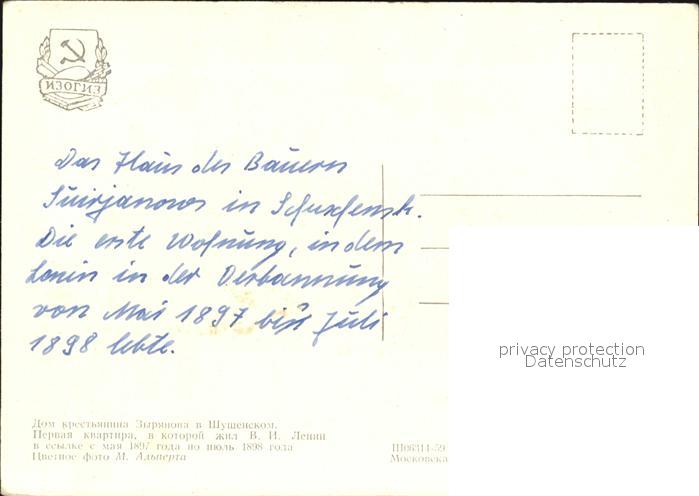 ИЗОГИЗ
Das Haus des Bauern
in
Die erste Wohnung, in dem
Lenin in der Verbannung
von Mai 1897 bis Juli
1898 lebte.
privacy protection
Datenschutz
Дом крестьянина Зырянова в Шушенском.
Первая квартира, в которой жил В. И. Ленин
в ссылке с мая 1897 года по июль 1898 года
Цветное фото М. Альперта
Ш06314-59
Московска